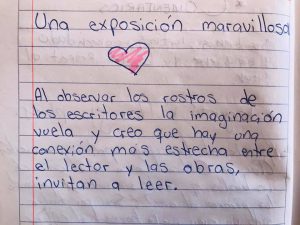 Una exposición maravillosa
Al observar los rostros de
los escritores la imaginación
vuela y creo que hay una
conexión más estrecha entre
el lector y las obras,
invitan a leer.